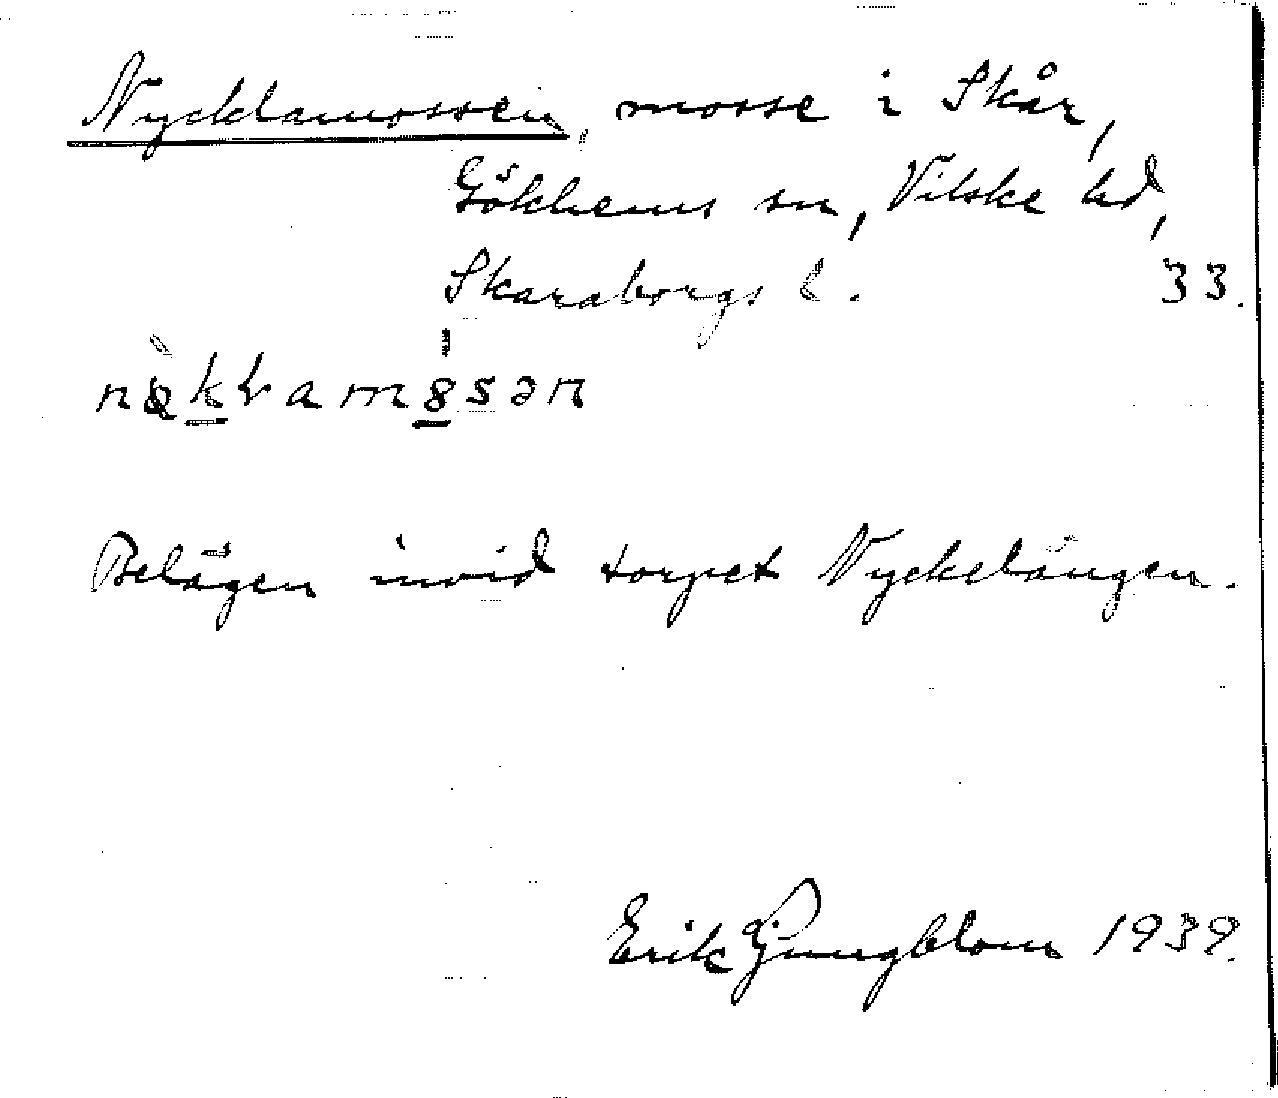 Nycklamossen, mosse i Skår,
Gökhems sn, Vilske hd,
Skaraborgs l. 33.
Belägen invid torpet Nyckelängen.
Erik Ljungblom 1939.